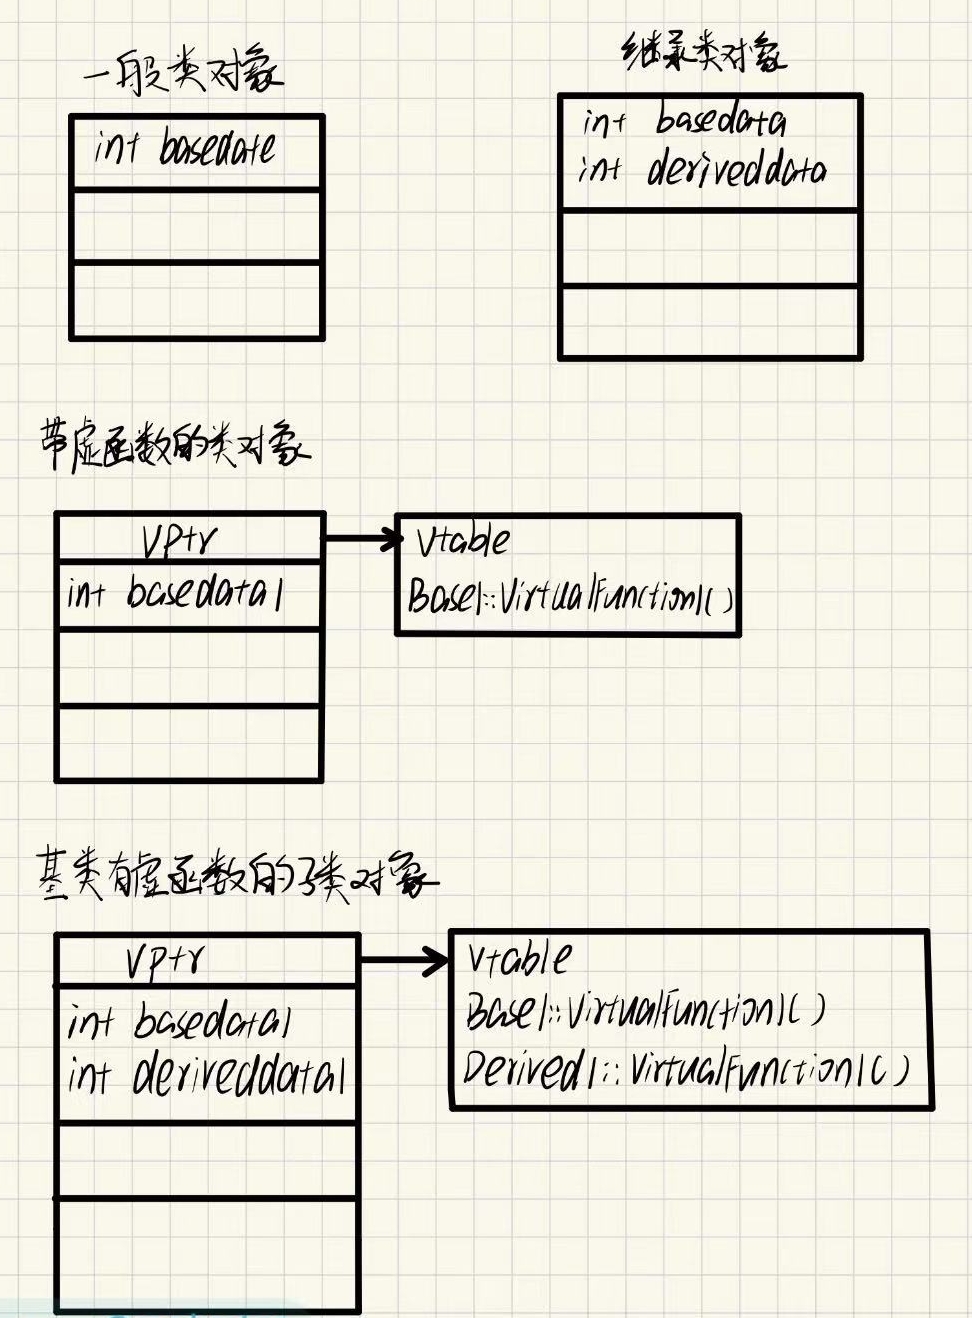 一般类对象
int basedate
继承类对象
int basedata
int deriveddata
带虚函数的类对象
VPtr
int basedata1
Vtable
Base1::VirtualFunction1()
基类有虚函数的子类对象
VPtr
int basedata1
int deriveddata1
Vtable
Base1::VirtualFunction1()
Derived1::VirtualFunction1()